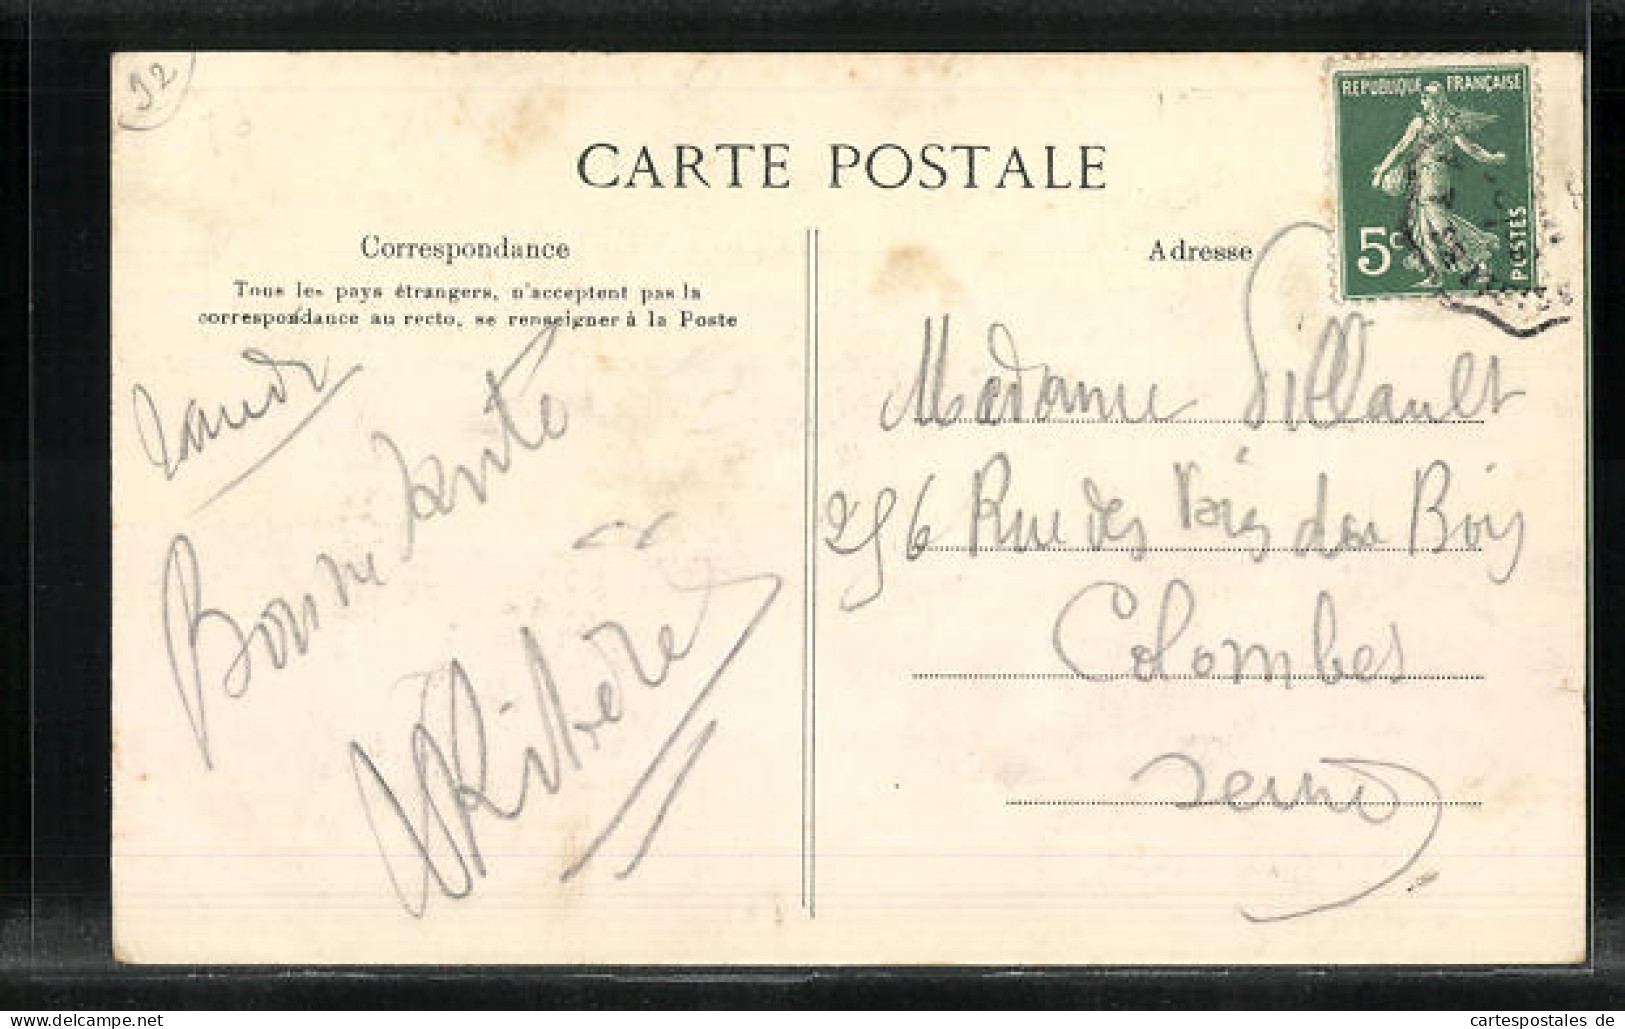 92
CARTE POSTALE
REPUBLIQUE FRANÇAISE
5c
POSTES
Correspondance
Tous les pays étrangers, n'acceptent pas la
correspondance au recto, se renseigner à la Poste
Bonne Santé
Adresse
Madame Villault
256 Rue des Voies du Bois
Colombes
Seine
www.delcampe.net
cartespostales de